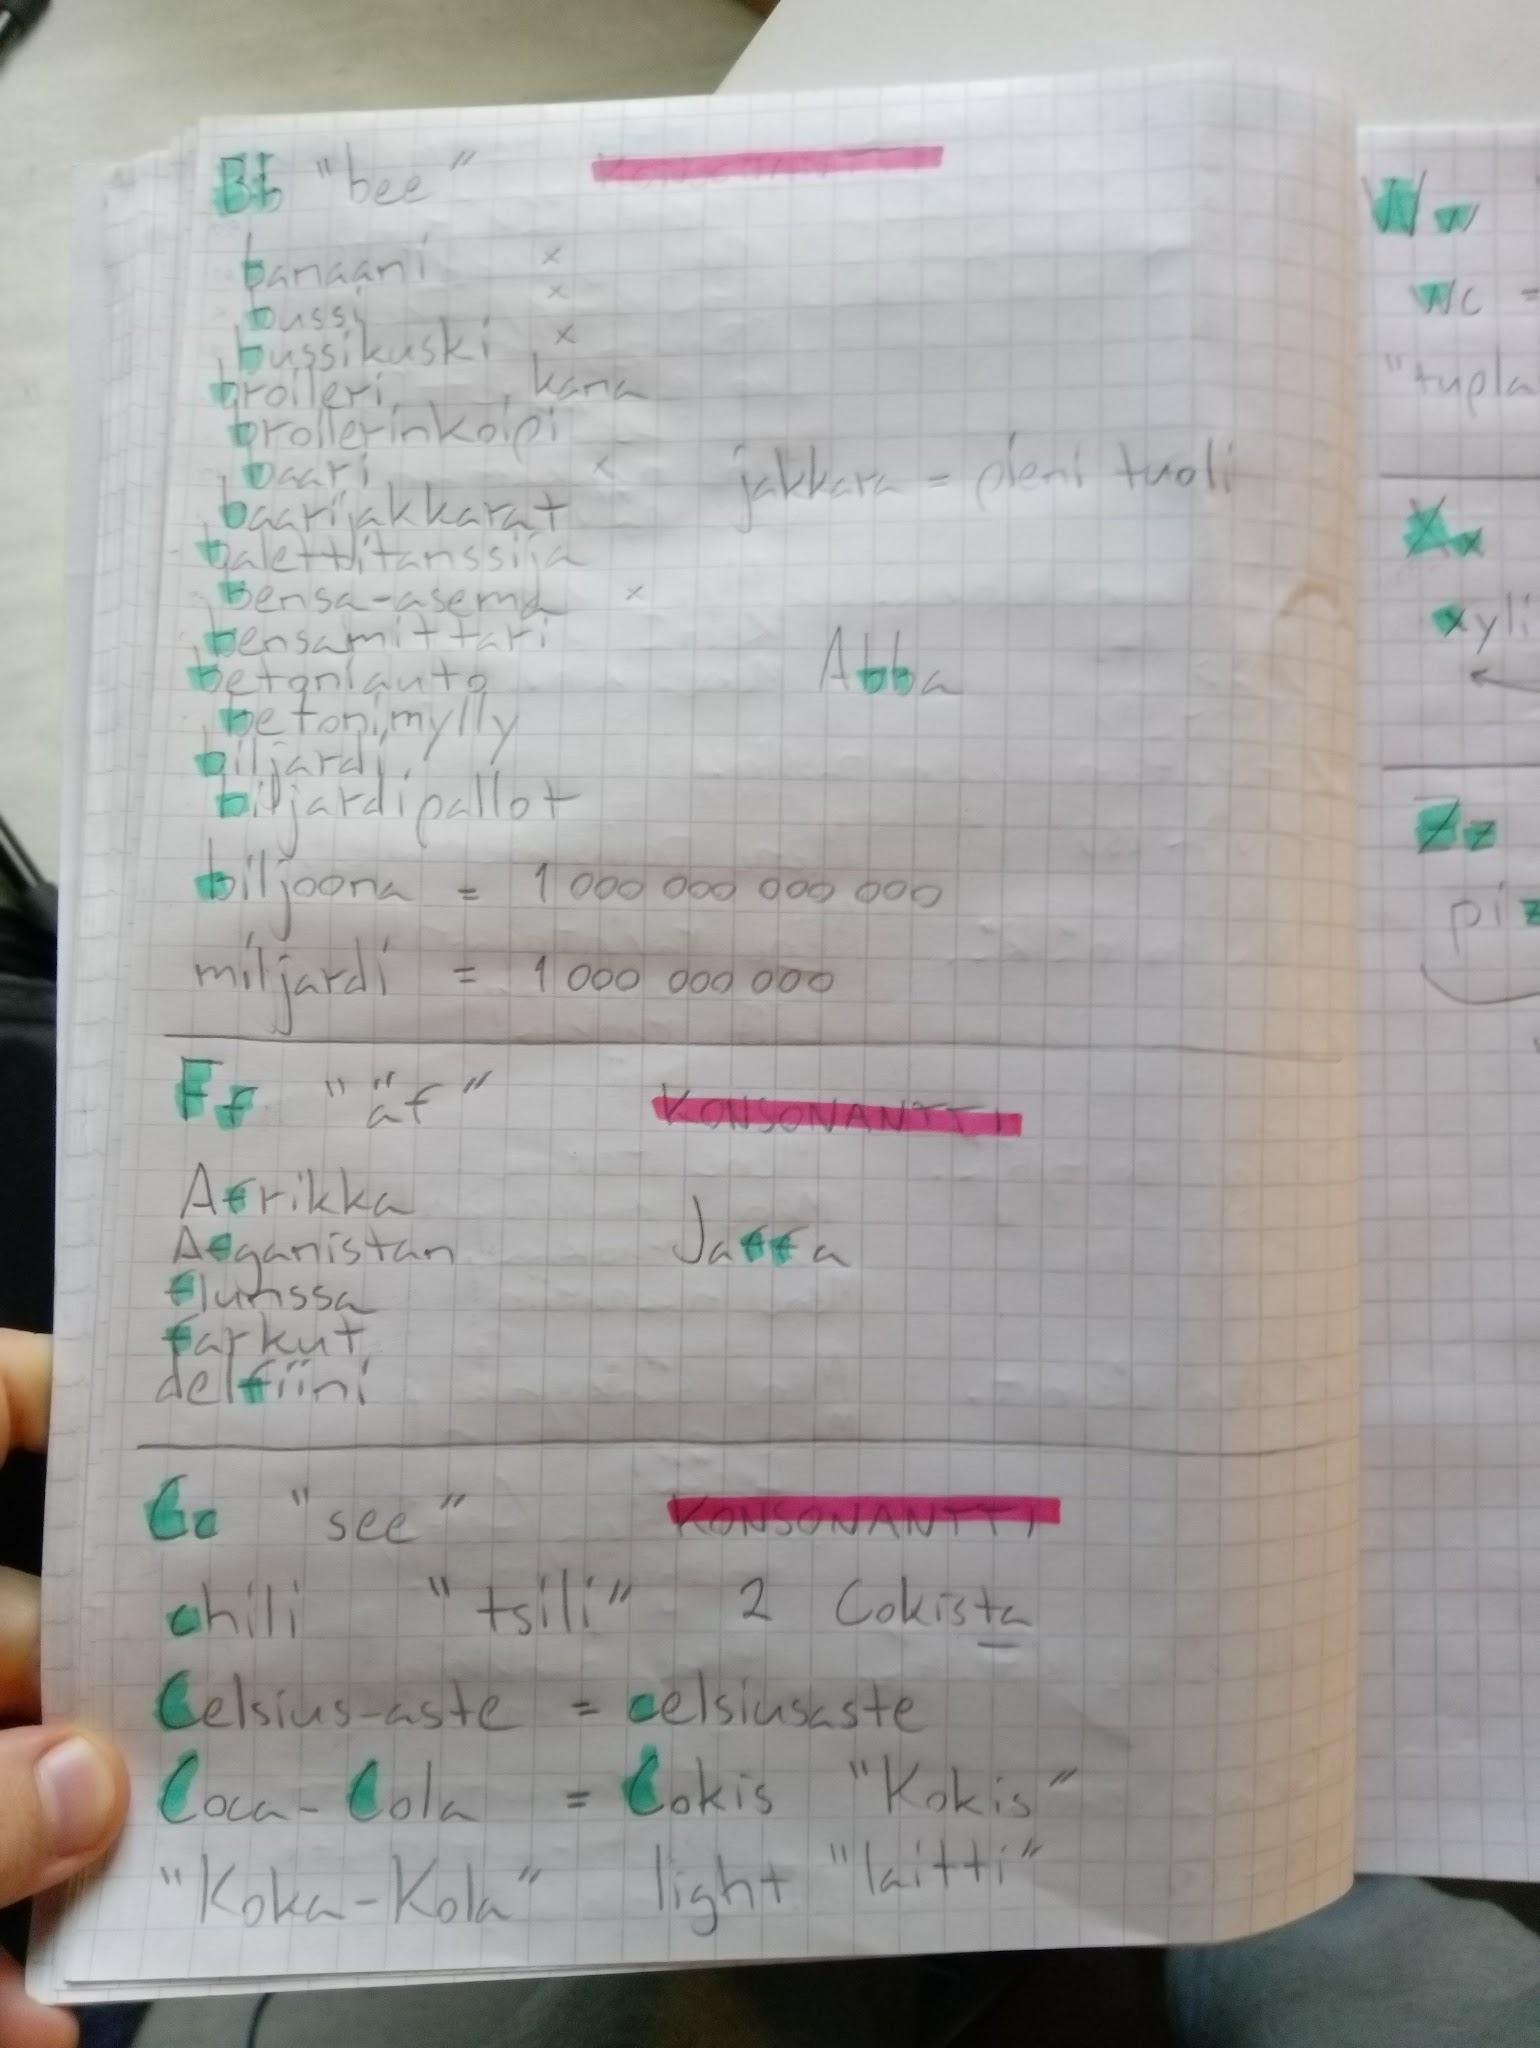 Bb "bee" KONSONANTTI
banaani x
bussi x
bussikuski x
broileri, kana
broilerinkoipi
baari x jakkara = pieni tuoli
baarijakkarat
balettitanssija
bensa-asema x
bensamittari
betoniauto Abba
betonimylly
biljardi
biljardipallot
biljoona = 1 000 000 000 000
miljardi = 1 000 000 000
Ff "äf" KONSONANTTI
Afrikka Jaffa
Afganistan
flunssa
farkut
delfiini
Cc "see" KONSONANTTI
chili "tsili" 2 Cokista
Celsius-aste = celsiusaste
Coca-Cola = Cokis "Kokis"
"Koka-Kola" light "laitti"
Ww
wc =
"tupla
Xx
xyli
Zz
piz